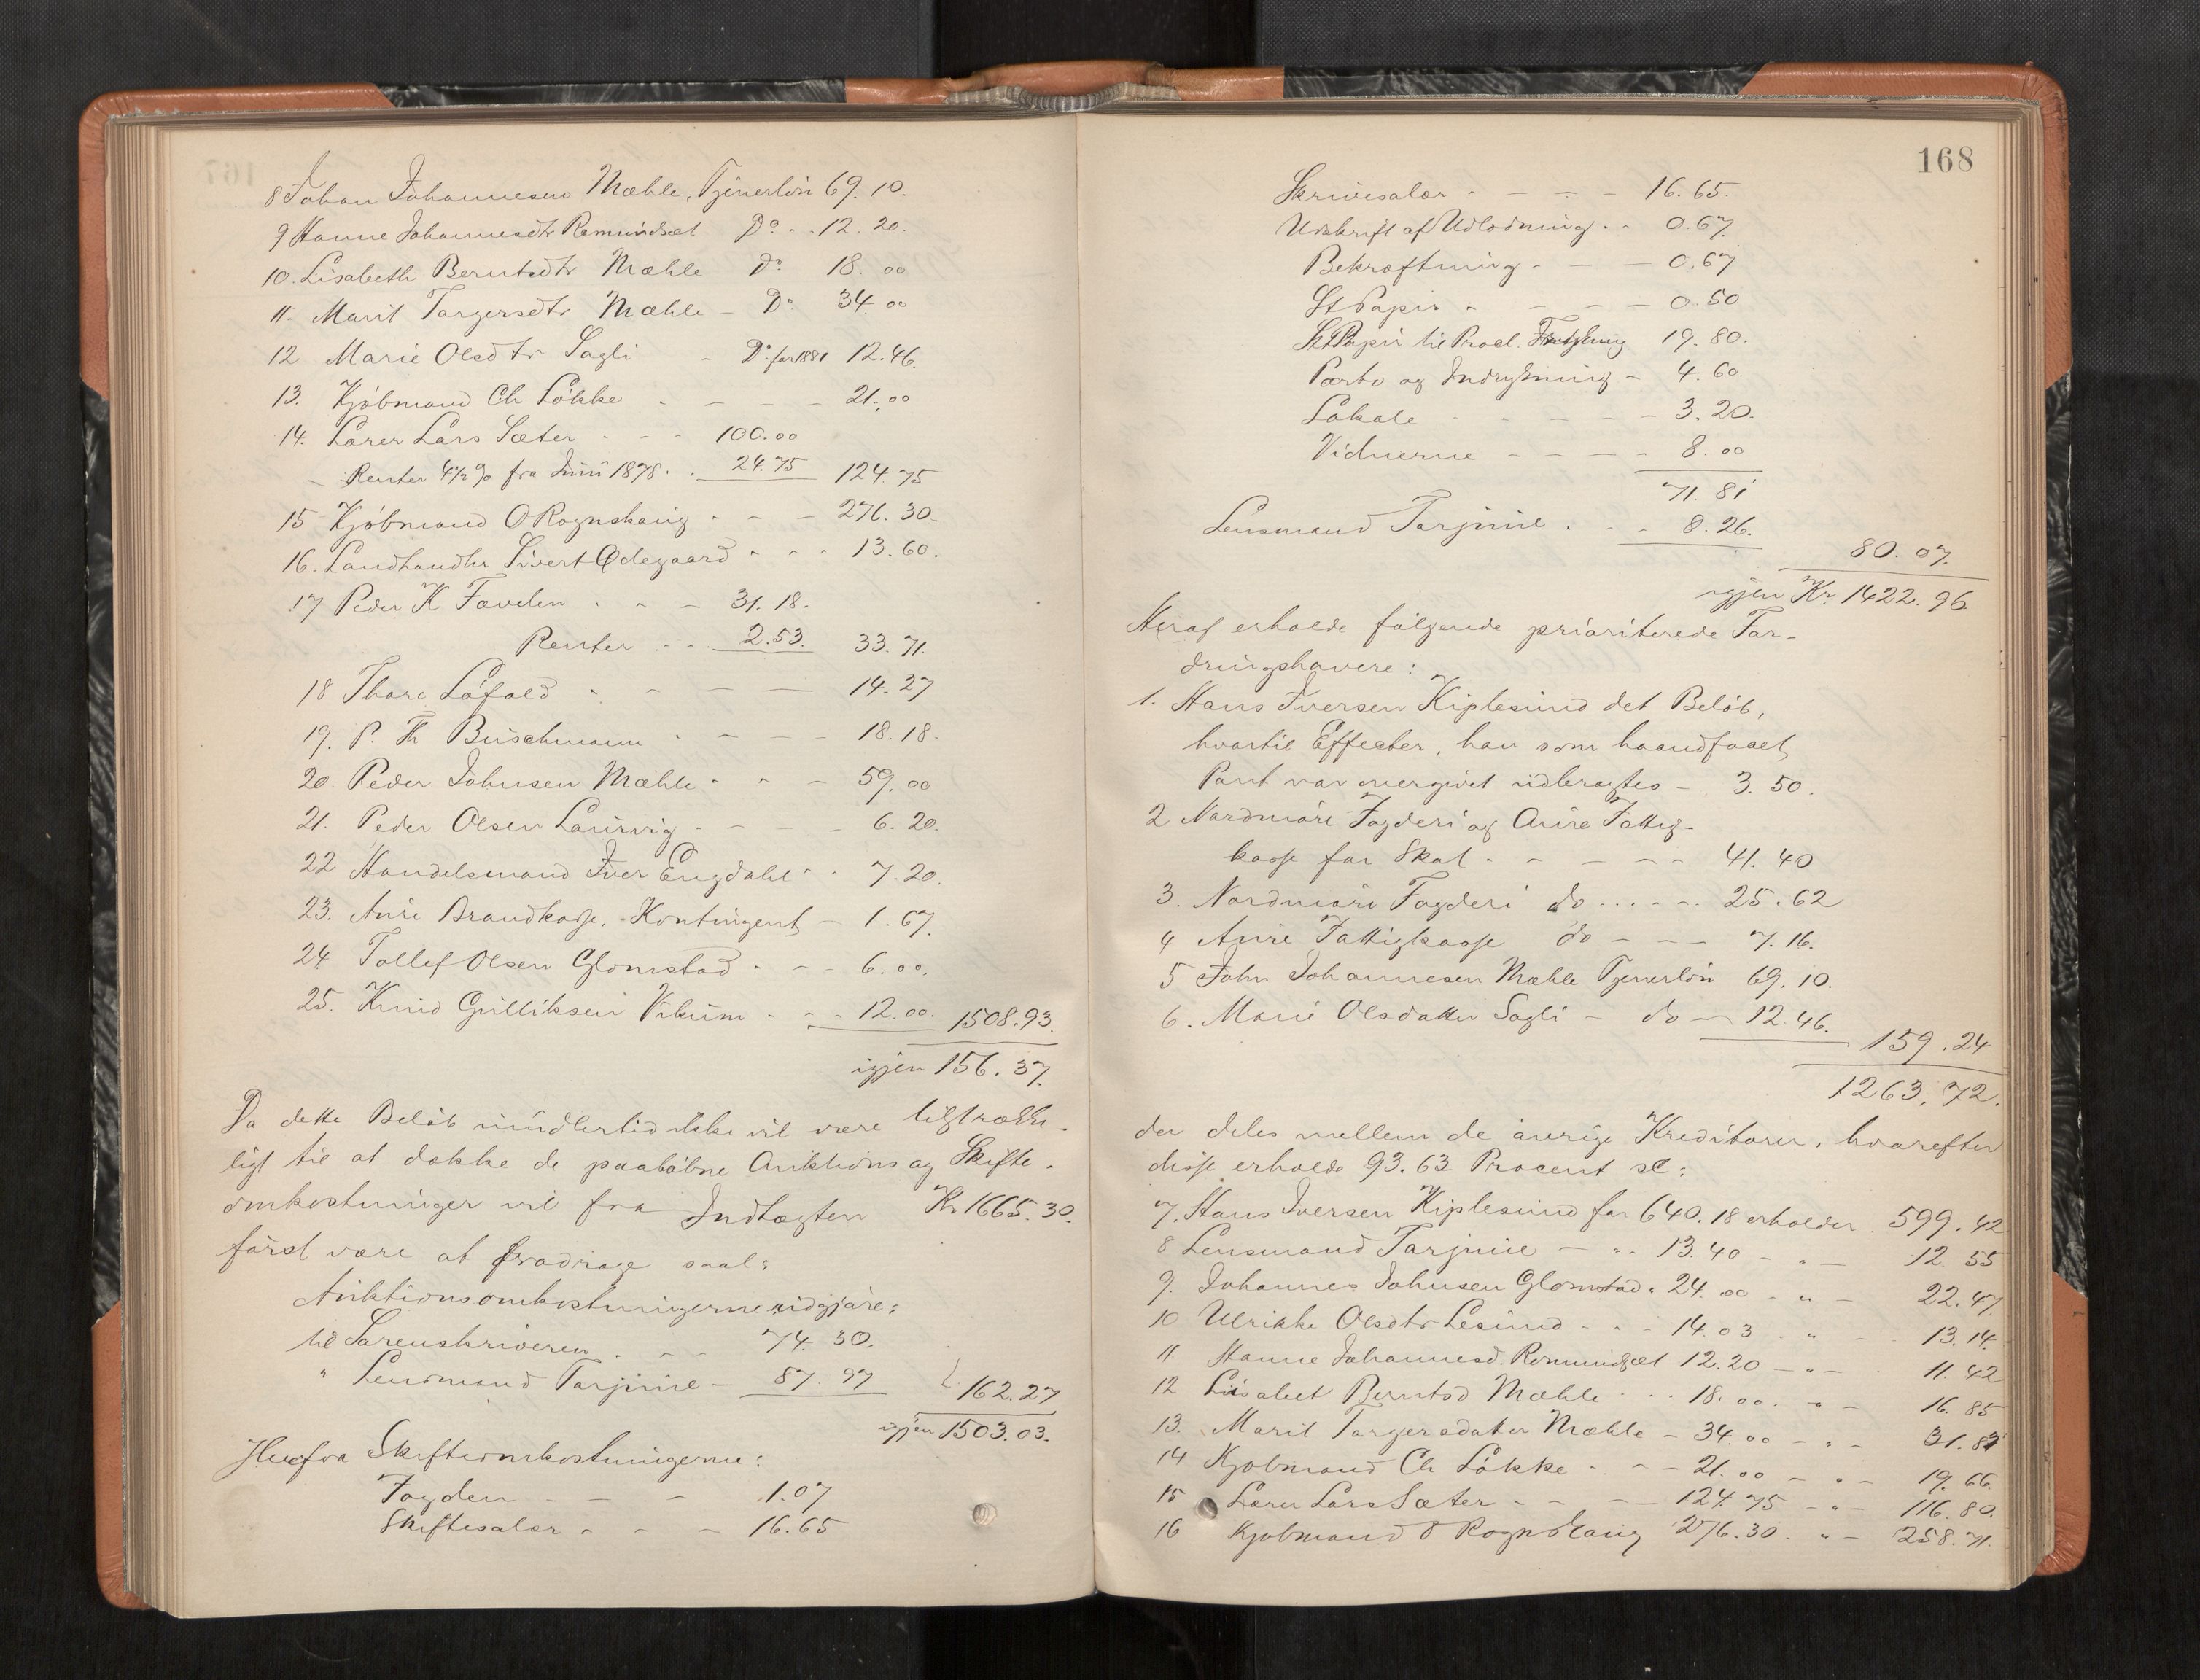 8 Johan Johannesen Mæhle, Tjenerløn 69.10.
9 Hanne Johannesdtr Romundsæt Do - - 12.20.
10. Lisabeth Berntsdtr Mæhle Do 18.00
11. Marit Torgersdtr Mæhle - Do 34.00
12 Marie Olsdtr Sagli - Do for 1881 12.46.
13. Kjøbmand Ch Løkke - - - - 21.00
14. Lærer Lars Sæter - - - 100.00
- Renter 4½ % fra Juni 1878 - - 24.75 124.75
15 Kjøbmand O Rognskaug - - - 276.30
16. Landhandler Sivert Ødegaard - - - 13.60.
17 Peder K Fævelen - - - 31.18.
Renter - - - 2.53. 33.71.
18 Thore Løfald - - - - 14.27
19. P. Th Buschmann - - - - 18.18.
20. Peder Johnsen Mæhle - - - 59.00
21. Peder Olsen Laurvig - - - - 6.20.
22 Handelsmand Iver Engdahl - - 7.20.
23. Aure Brandkasse. - Kontingent - 1.67.
24 Tollef Olsen Glomstad - - - 6.00.
25. Knud Gulliksen Vikum - - - 12.00. 1508.93.
igjen 156.37.
Da dette Beløb imidlertid ikke vil være tilstrække-
ligt til at dække de paaløbne Auktions og Skifte-
omkostninger vil fra Indtægten Kr 1665.30.
først være at fradrage saal:
Auktionsomkostningerne udgjøre:
til Sorenskriveren - - - 74.30.
" Lensmand Tarjuul - 87.97 162.27
igjen 1503.03.
Herfra Skifteomkostningerne:
Fogden - - - 1.07
Skiftesalær - - - 16.65
168
Skrivesalær - - - - 16.65.
Udskrift af Udlodning - - 0.67
Bekræftning - - - 0.67
St Papir - - - - 0.50
St Papir til Procl. 19.80.
Porto og Indrykning - 4.60
Lokale - - - - 3.20.
Vidnerne - - - - 8.00
71.81
Lensmand Tarjuul - - - 8.26.
80.07.
igjen Kr 1422.96
Heraf erholde følgende prioriterede For-
dringshavere:
1. Hans Iversen Kiplesund det Beløb,
hvortil Effecter, han som haandfaaet
Pant var overgivet udbragtes - 3.50.
2 Nordmøre Fogderi og Aure Fattig-
kasse for Skat - - - - - 41.40
3. Nordmøre Fogderi do - - - - - 25.62
4 Aure Fattigkasse do - - - 7.16.
5 John Johannesen Mæhle Tjenerløn 69.10.
6. Marie Olsdatter Sagli - do - 12.46.
159.24
1263.72.
der deles mellem de øvrige Kreditorer, hvorefter
disse erholde 93.63 Procent sl:
7. Hans Iversen Kiplesund for 640.18 erholder 599.42
8 Lensmand Tarjuul - - - 13.40 - " - 12.55
9. Johannes Johnsen Glomstad " 24.00 - " - 22.47
10 Ulrikke Olsdtr Lesund - - - 14.03 - " - 13.14.
11 Hanne Johannesd. Romundsæt 12.20 - " - 11.42
12 Lisabet Berntsd Mæhle - - - 18.00. - " - 16.85
13. Marit Torgersdatter Mæhle - 34.00 - " - 31.83
14 Kjøbmand Ch Løkke - - - 21.00 - " - 19.66.
15 Lærer Lars Sæter - - - 124.75 - " - 116.80.
16 Kjøbmand O Rognskaug 276.30. " - 258.71.